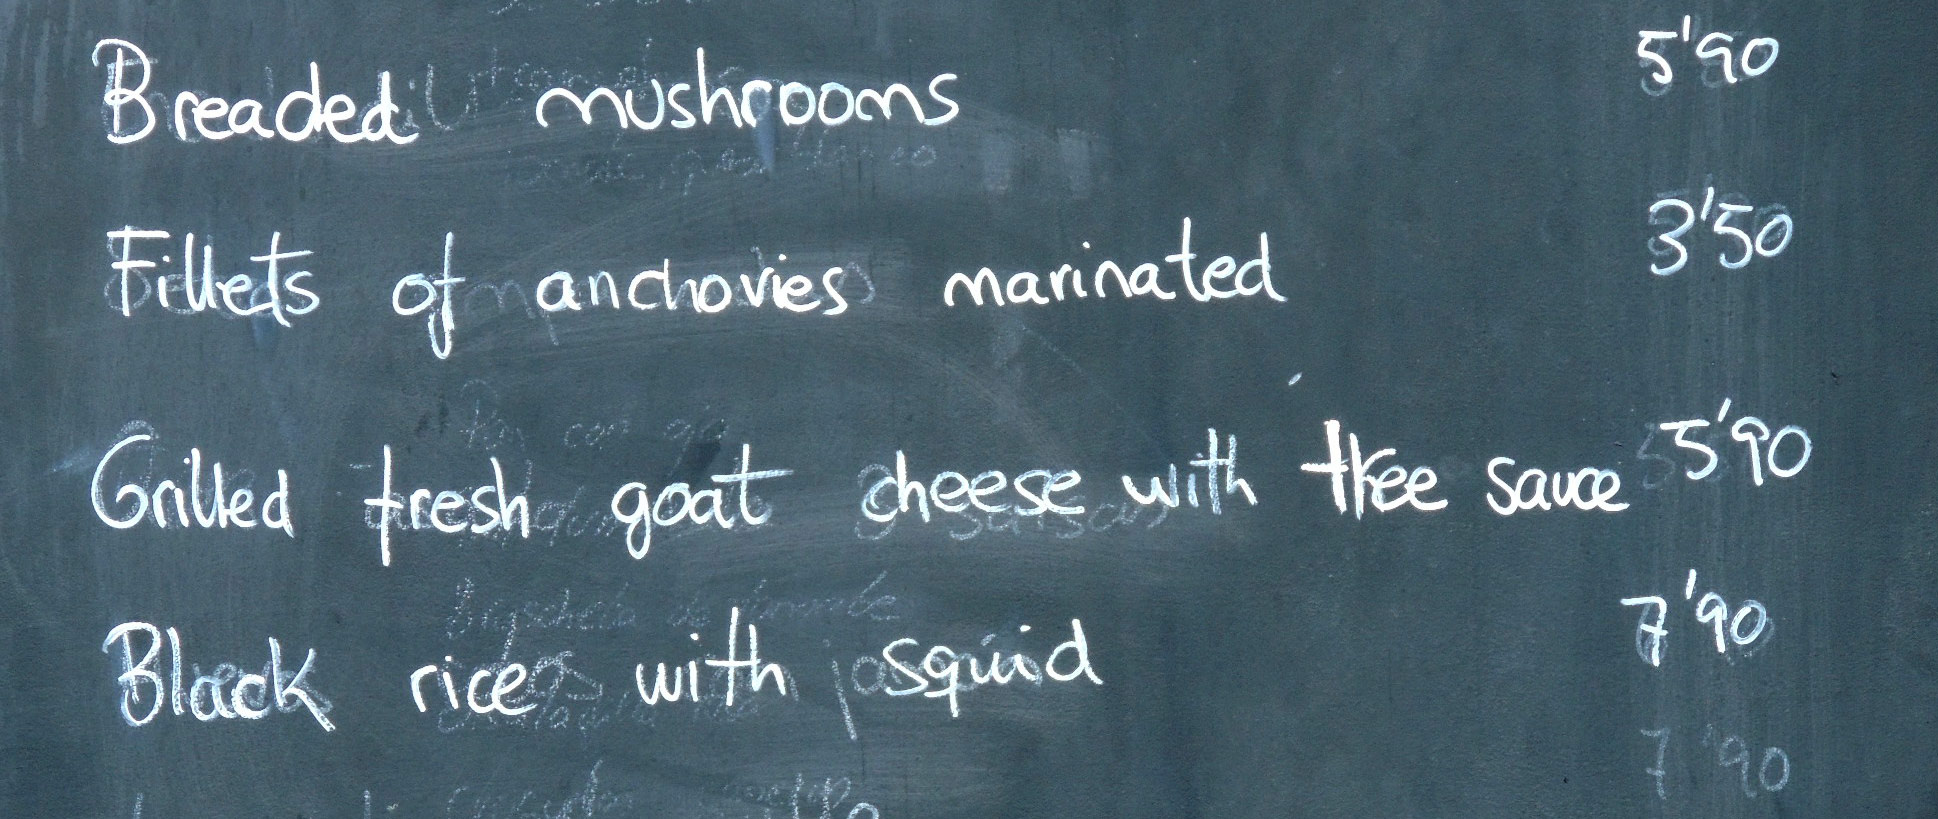 Breaded mushrooms 5'90
Fillets of anchovies marinated 3'50
Grilled fresh goat cheese with three sauce 5'90
Black rice with squid 7'90
7'90